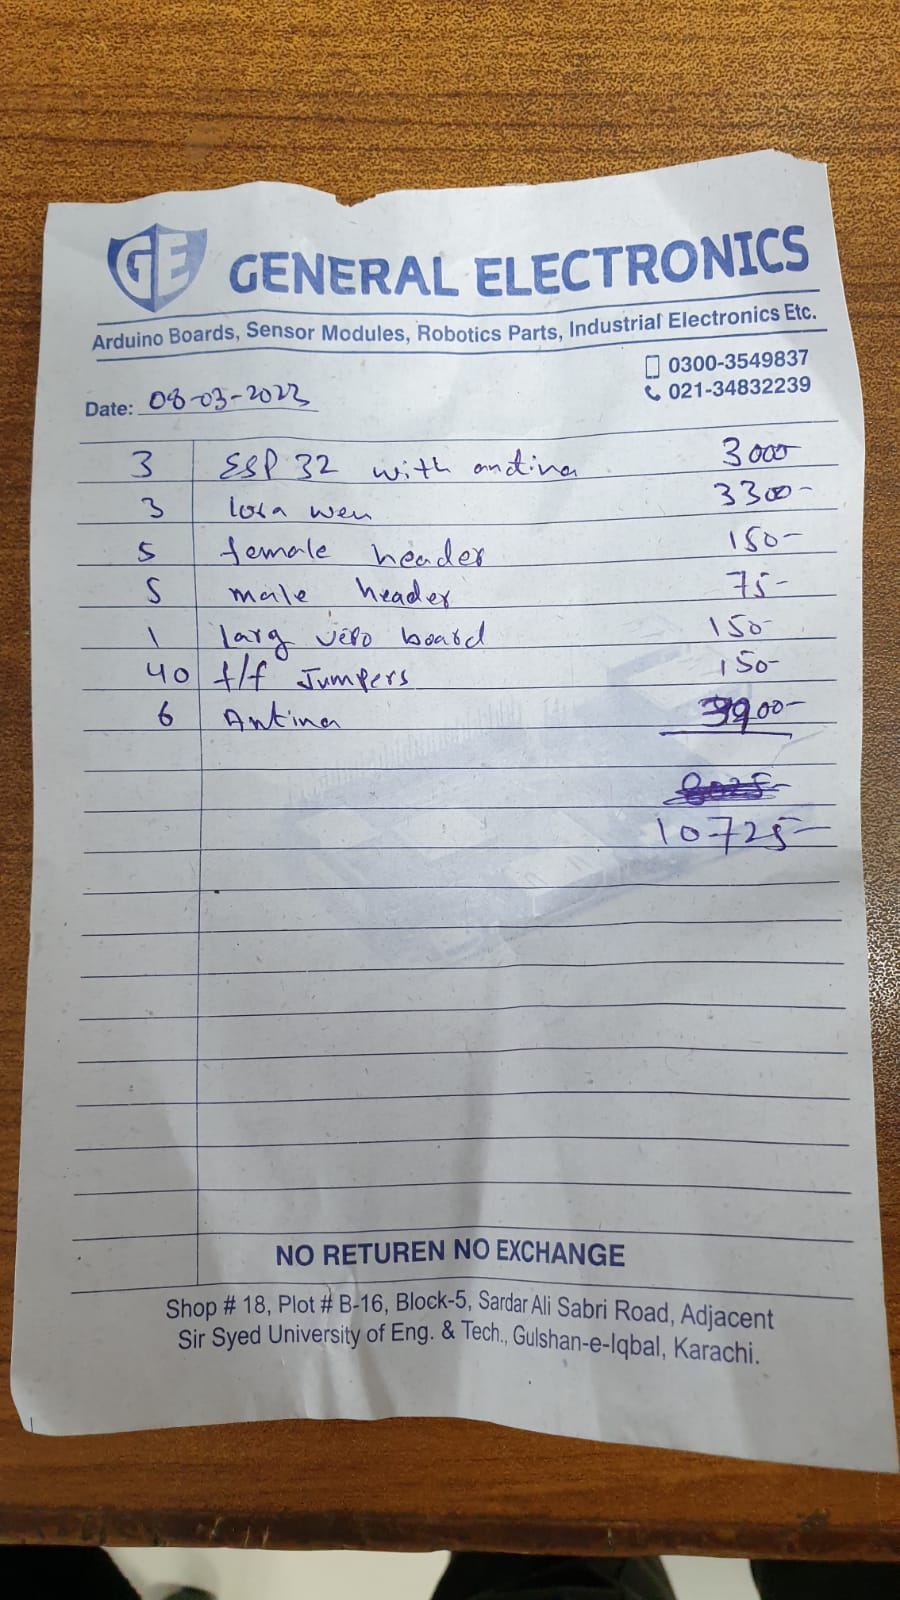 GE GENERAL ELECTRONICS
Arduino Boards, Sensor Modules, Robotics Parts, Industrial Electronics Etc.
0300-3549837
Date: 08-03-2023 021-34832239
3 ESP 32 with antina 3000-
3 lora wen 3300-
5 female header 150-
5 male header 75-
1 larg vero board 150-
40 f/f Jumpers 150-
6 Antina 3900-
10725-
NO RETUREN NO EXCHANGE
Shop # 18, Plot # B-16, Block-5, Sardar Ali Sabri Road, Adjacent
Sir Syed University of Eng. & Tech., Gulshan-e-Iqbal, Karachi.